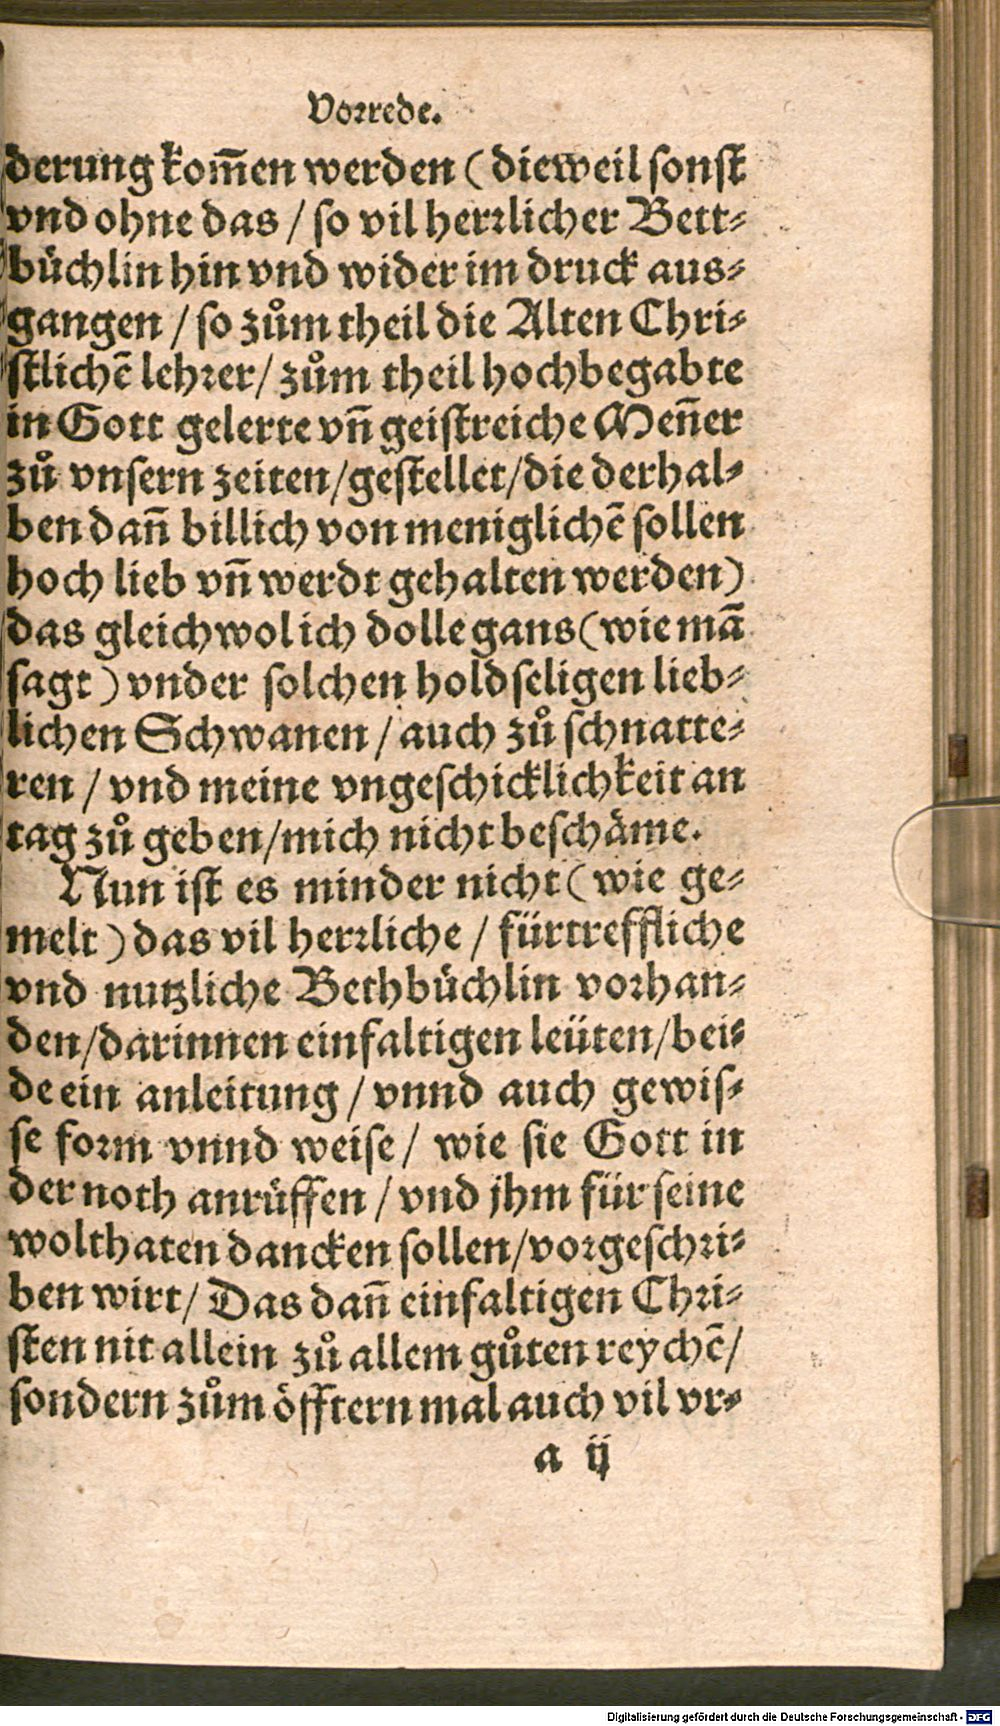 Vorrede.
derung kom̃en werden (dieweil sonst
vnd ohne das / so vil herrlicher Bett⸗
bůchlin hin vnd wider im druck aus⸗
gangen / so zům theil die Alten Chri⸗
stlichẽ lehrer / zům theil hochbegabte
in Gott gelerte vñ geistreiche Meñer
zů vnsern zeiten / gestellet / die derhal⸗
ben dañ billich von meniglichẽ sollen
hoch lieb vñ werdt gehalten werden)
das gleichwol ich dolle gans (wie mã
sagt) vnder solchen holdseligen lieb⸗
lichen Schwanen / auch zů schnatte⸗
ren / vnd meine vngeschicklichkeit an
tag zů geben / mich nicht beschäme.
Nun ist es minder nicht (wie ge⸗
melt) das vil herrliche / fürtreffliche
vnd nutzliche Bethbüchlin vorhan⸗
den / darinnen einfaltigen leüten / bei⸗
de ein anleitung / vnnd auch gewis⸗
se form vnnd weise / wie sie Gott in
der noth anrüffen / vnd jhm für seine
wolthaten dancken sollen / vorgeschri⸗
ben wirt / Das dañ einfaltigen Chri⸗
sten nit allein zů allem gůten reychẽ /
sondern zům öfftern mal auch vil vr⸗
a ij
Digitalisierung gefördert durch die Deutsche Forschungsgemeinschaft - DFG